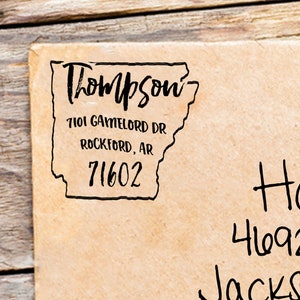 Thompson
7101 GAMELORD DR
ROCKFORD, AR
71602
4692
Jacks